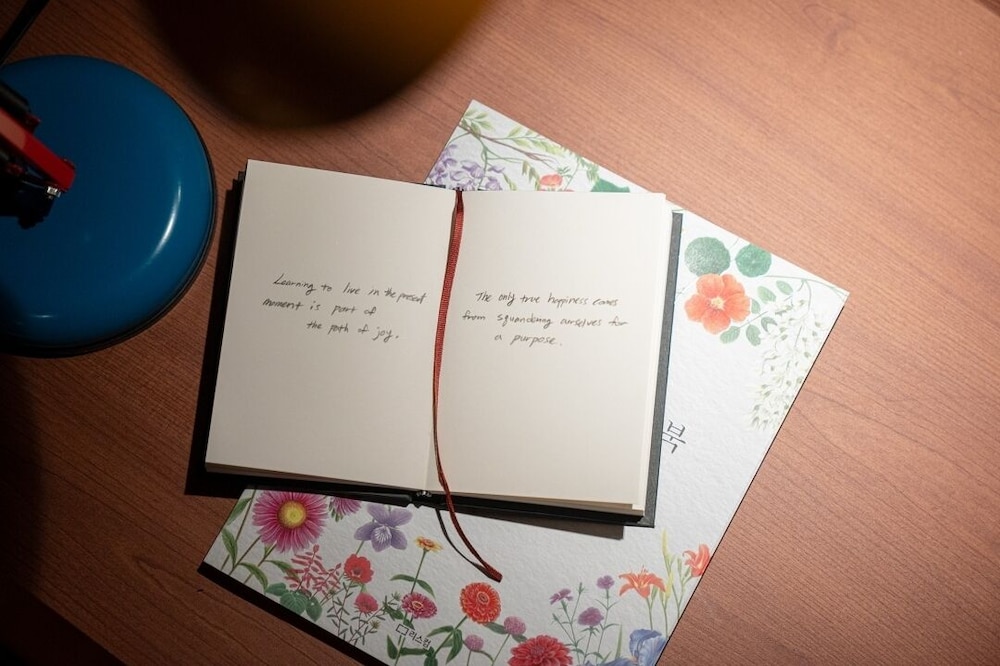 Learning to live in the present
moment is part of
the path of joy.
The only true happiness comes
from squandering ourselves for
a purpose.
북
리스컴